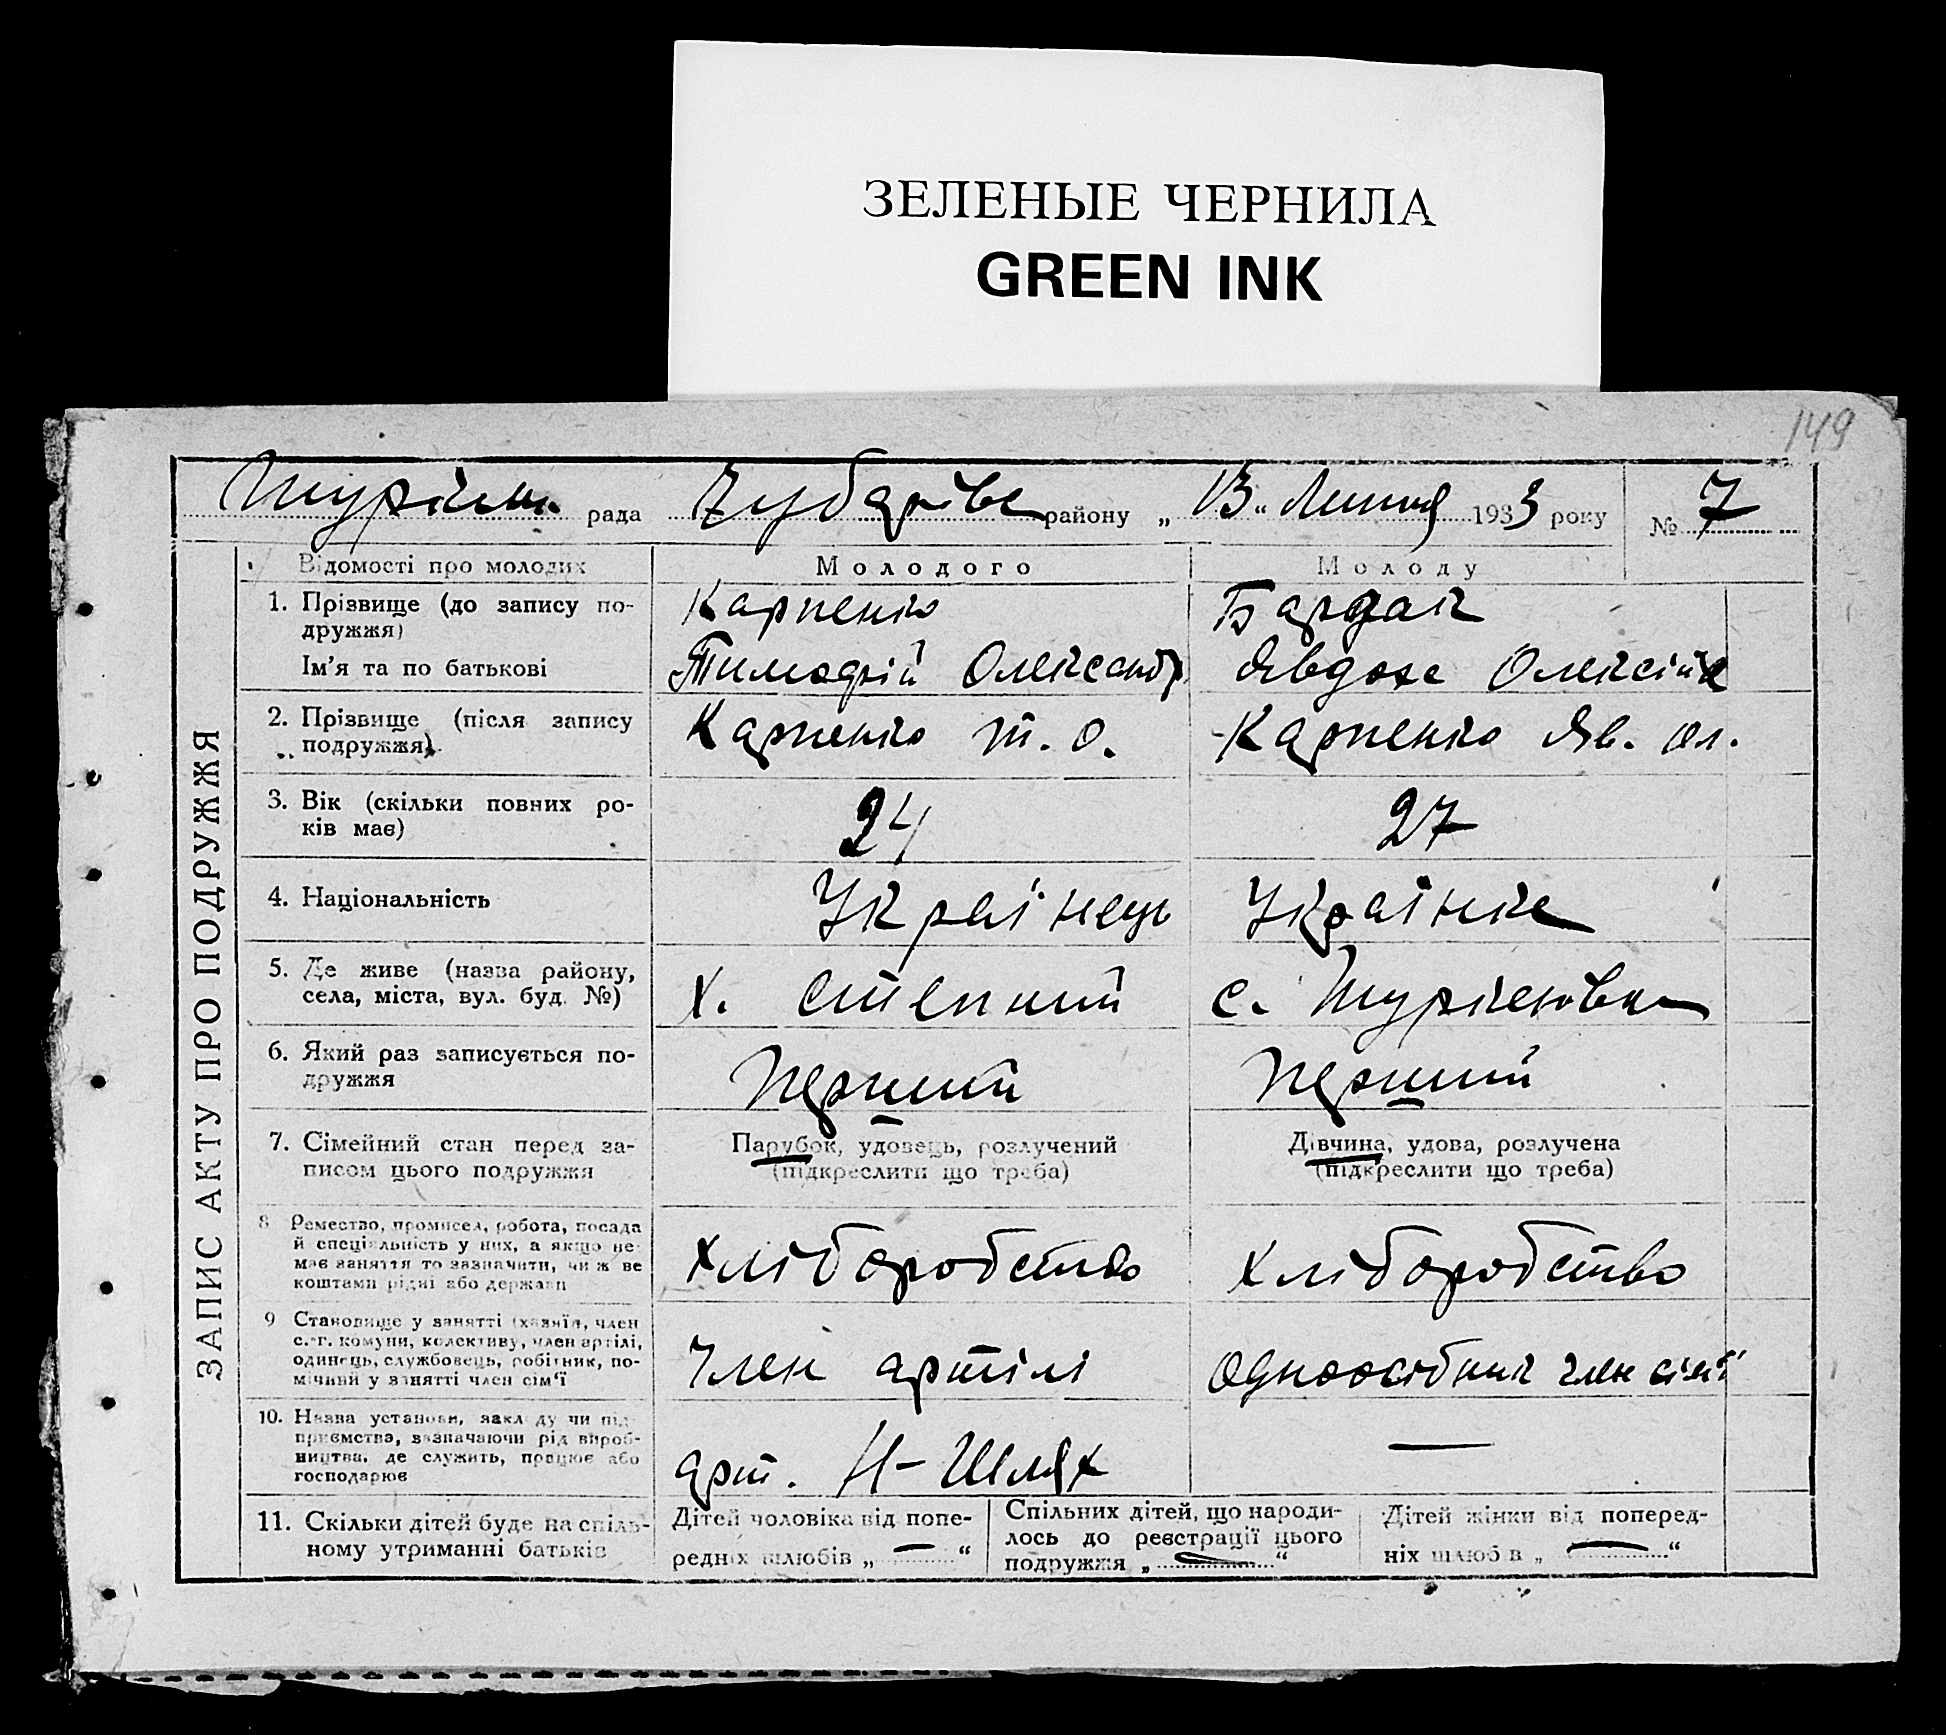 ЗЕЛЕНЫЕ ЧЕРНИЛА
GREEN INK
149
рада Чубарівс району „ 13 “ Липня 1933 року № 7
ЗАПИС АКТУ ПРО ПОДРУЖЖЯ
Відомості про молодих Молодого Молоду
1. Прізвище (до запису по- Карпенко
дружжя)
Ім'я та по батькові Тимофій Олександр Явдоха Олексіїв
2. Прізвище (після запису Карпенко Т. О. Карпенко Яв. Ол.
подружжя)
3. Вік (скільки повних ро- 24 27
ків має)
4. Національність Українець Українка
5. Де живе (назва району, х. Степний с. Туркеновка
села, міста, вул. буд. №)
6. Який раз записується по- Перший Перший
дружжя
7. Сімейний стан перед за- Парубок, удовець, розлучений Дівчина, удова, розлучена
писом цього подружжя (підкреслити що треба) (підкреслити що треба)
8 Ремество, промисел, робота, посада Хліборобство Хліборобство
й спеціяльність у них, а якщо не
має заняття то зазначити, чи ж ве
коштами рідні або держави
9 Становище у занятті (хазяїн, член Член артілі Одноосібник член сім'ї
с.-г. комуни, колективу, член артілі,
одинець, службовець, робітник, по-
мічний у занятті член сім'ї
10. Назва установи, закладу чи під- арт. Н-Шлях —
приємства, зазначаючи рід вироб-
ництва, де служить, працює або
господарює
11. Скільки дітей буде на спіль- Дітей чоловіка від попе- Спільних дітей, що народи- Дітей жінки від поперед-
ному утриманні батьків редніх шлюбів „ — “ лось до реєстрації цього ніх шлюбів „ — “
подружжя „ — “